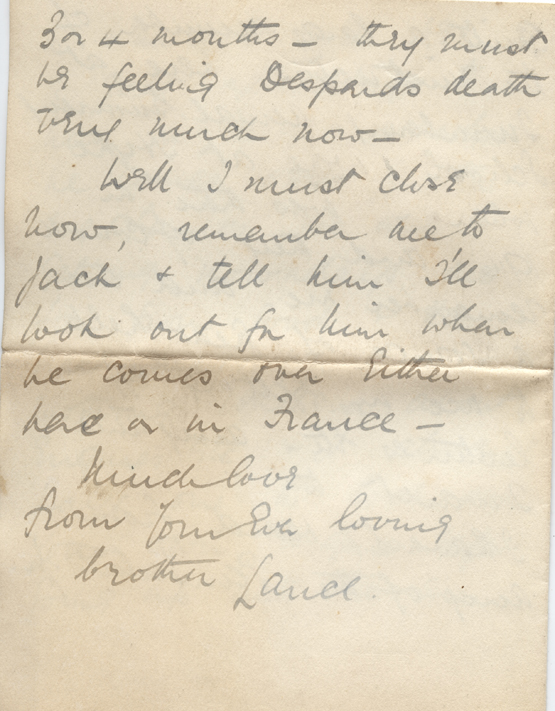 3 or 4 months - they must
be feeling Despards death
very much now -
Well I must close
now, remember me to
Jack & tell him I'll
look out for him when
he comes over Either
here or in France -
Much love
from Your Ever loving
brother Lance.